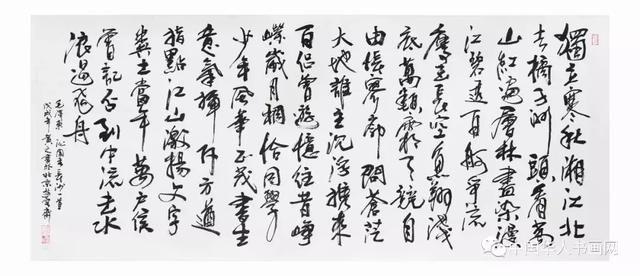 獨立寒秋湘江北
去橘子洲頭看萬
山紅遍層林盡染漫
江碧透百舸爭流
鷹擊長空魚翔淺
底萬類霜天競自
由悵寥廓問蒼茫
大地誰主沉浮攜來
百侶曾遊憶往昔崢
嶸歲月稠恰同學
少年風華正茂書生
意氣揮斥方遒
指點江山激揚文字
糞土當年萬户侯
曾記否到中流击水
浪遏飛舟
毛澤東沁園春長沙一首
戊戌年 於北京
中国华人书画网